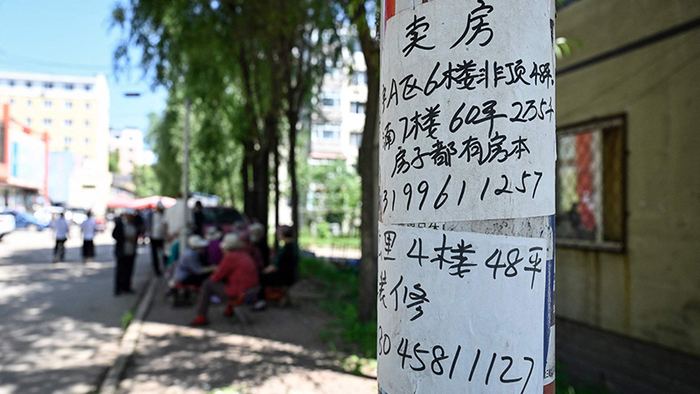 卖房
A区6楼非顶48平
7楼60平2354
房子都有房本
3199611257
里4楼48平
装修
3045811127